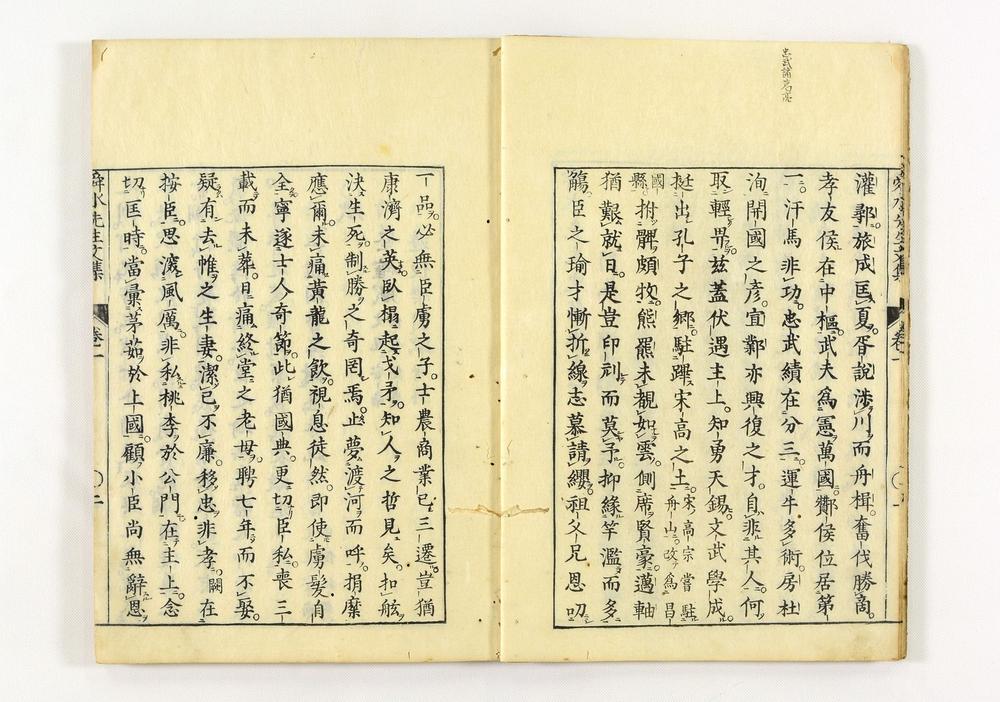 忠武諸葛亮
灌鄩旅成匡夏胥說涉川而舟楫奮伐勝商
孝友侯在中樞武夫爲憲萬國酇侯位居第
一汗馬非功忠武績在分三運牛多術房杜
洵開國之彦宜鄴亦興復之才自非其人何
取輕畀茲蓋伏遇主上知勇天錫文武學成
挺出孔子之鄉駐蹕宋高之土宋高宗嘗駐舟山改爲昌
國縣拊髀頗牧熊羆未親如雲側席賢豪邁軸
猶艱就日是豈印刓而莫予抑緣竽濫而多
觴臣之瑜才慚折線志慕請纓祖父兄恩叨
一品必無臣虜之子士農商業已三遷豈猶
康濟之英臥榻起戈矛知人之哲見矣扣舷
決生死制勝之奇罔焉止夢渡河而呼捐糜
應爾未痛黃龍之飮視息徒然即使虜髮自
全寧逐士人奇節此猶國典更切臣私喪三
載而未葬日痛終堂之老母聘七年而不娶
疑有去帷之生妻潔已不廉移忠非孝闕在
按臣思激風厲非私桃李於公門在主上念
切匡時當彙茅茹於上國顧小臣尚無辭恩
舜水先生文集
卷一
二